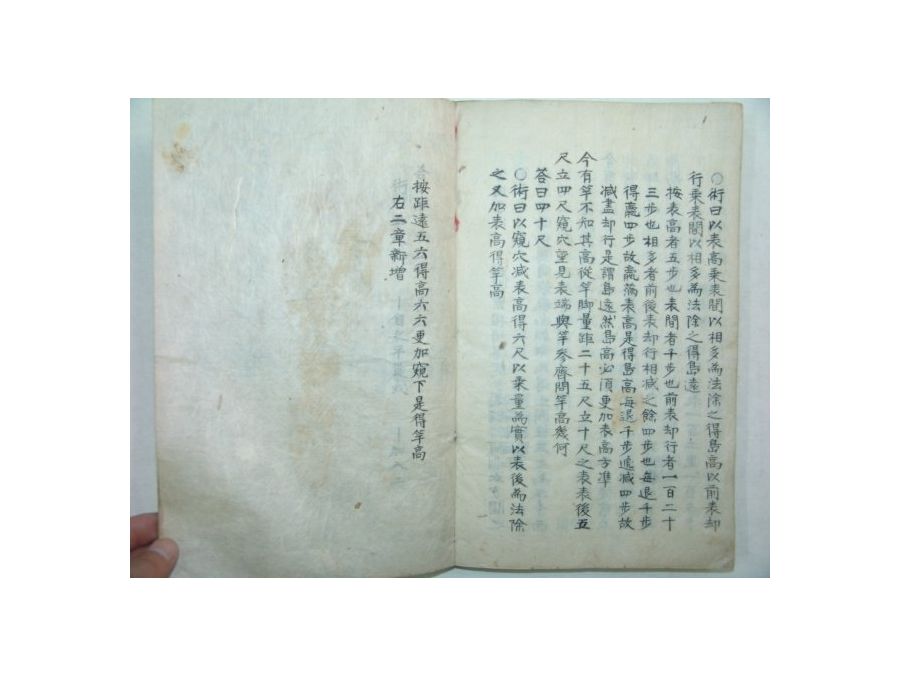 ○術曰以表高乘表間以相多爲法除之得島高以前表却
行乘表間以相多爲法除之得島遠
按表高者五步也表間者千步也前表却行者一百二十
三步也相多者前後表却行相减之餘四步也每退千步
得四步故表高是得島高每退千步遞减四步故
减盡却行是謂島遠然島高必須更加表高方準
今有竿不知其高從竿脚量距二十五尺立十尺之表表後五
尺立四尺窺穴望見表端與竿參齊問竿高幾何
答曰四十尺
○術曰以窺穴减表高得六尺以乘量爲實以表後爲法除
之又加表高得竿高
按距遠五六得高六六更加窺下是得竿高
右二章新增